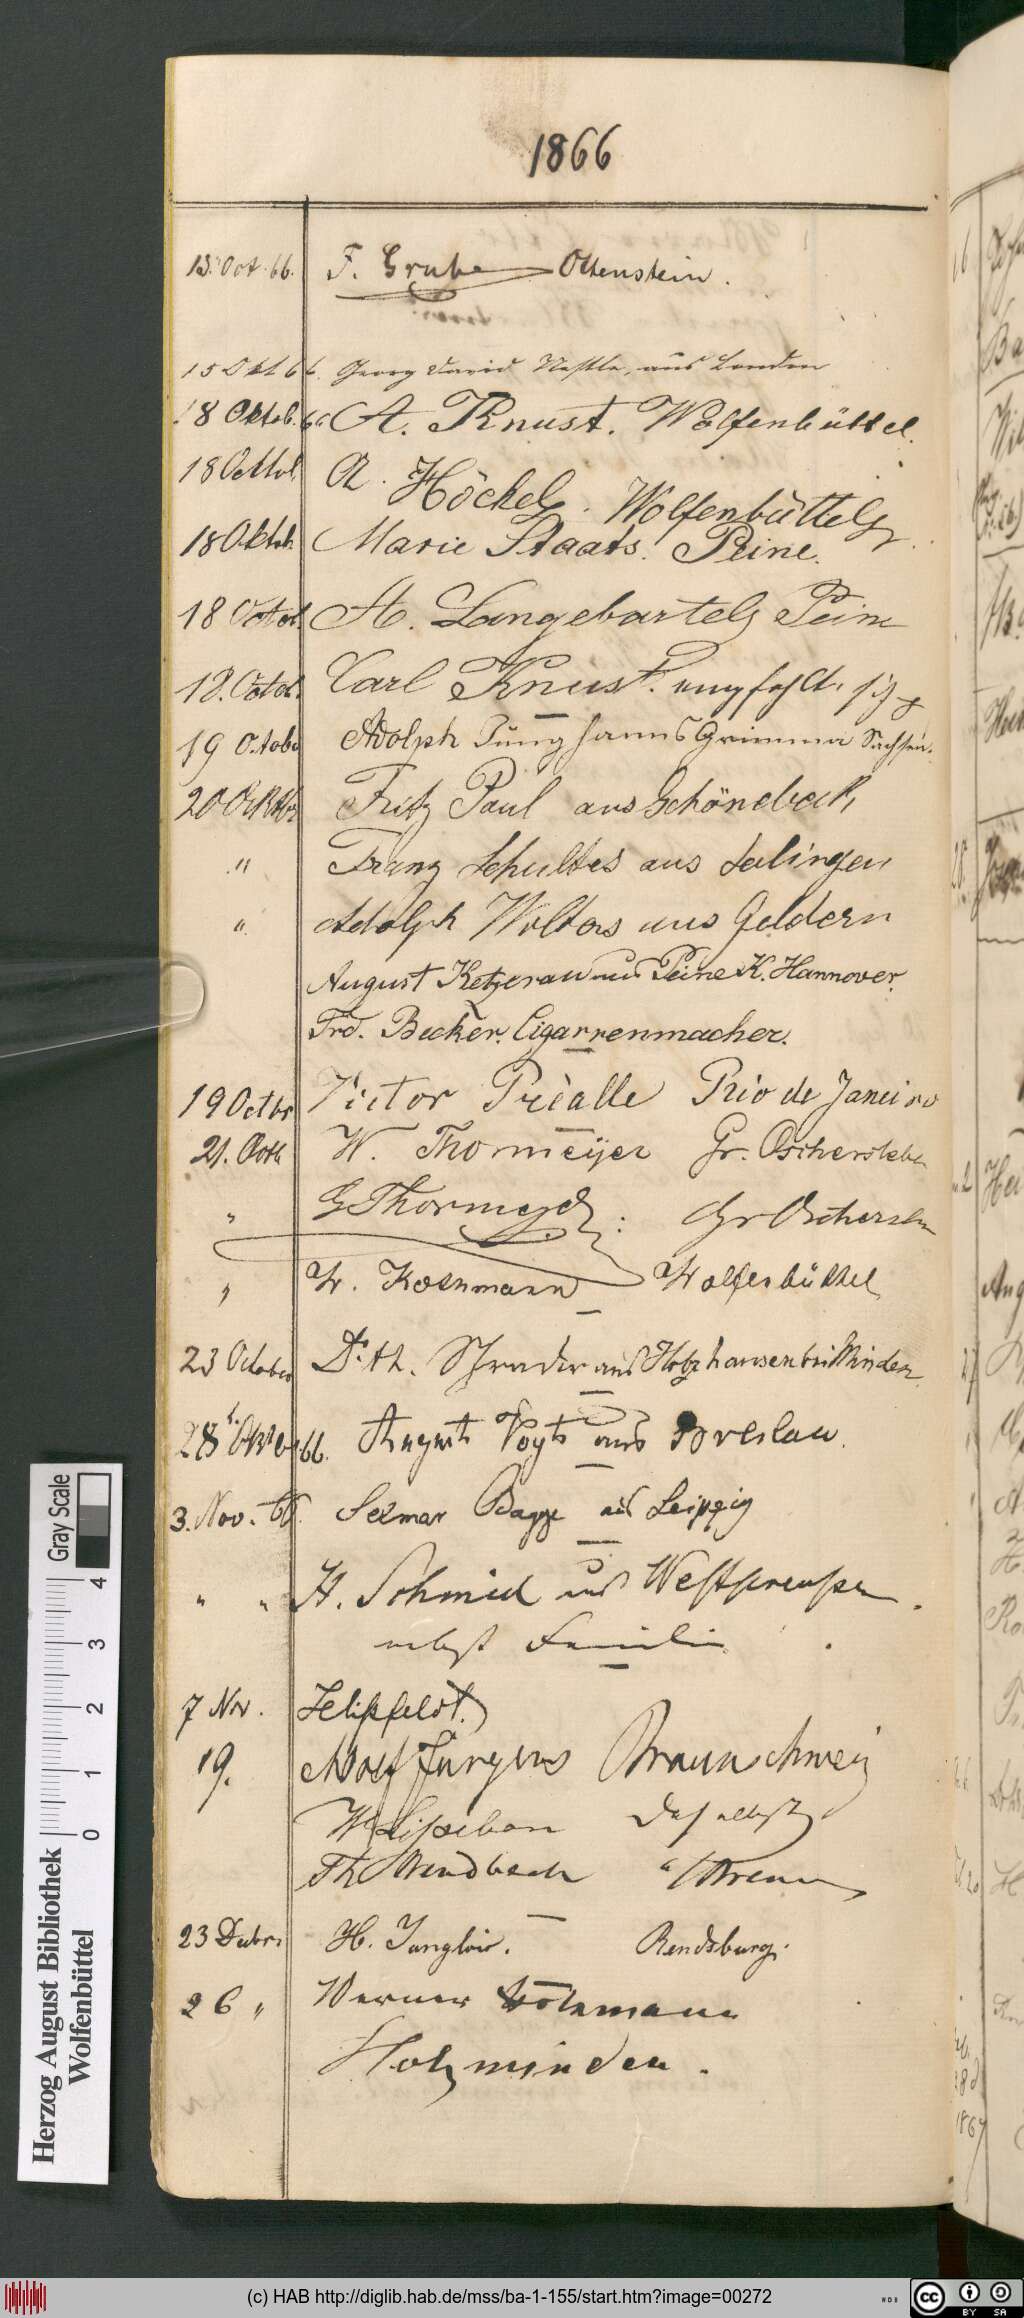 1866
13. Oct. 66. F. Grube Ottenstein.
15 Okt 66. Georg David Nestle, aus London
18 Oktob. 66 A. Knust. Wolfenbüttel.
18 Octbr. A. Höckel. Wolfenbüttel.
18 Oktob. Marie Staats. Peine.
18 Octob. A. Langebartels Peine
18. Octob. Carl Knust. empfehlt sich
19 October Adolph Junghanns Grimma Sachsen.
20 Oktbr Fritz Paul aus Schönebeck,
" Franz Schultes aus
" Adolph Wolters aus Geldern
August Ketzerau aus Peine K. Hannover.
Frd. Becker. Cigarrenmacher.
19 Octbr Victor Préalle Rio de Janeiro
21. Octb W. Thormeÿer Gr. Oschersleben
" G Thormeyer Gr Oschersleben
" W. Wolfenbüttel
23 October Dr. th. Schrader aus Holzhausen bei Minden
28 66. August Vogt aus Breslau.
3. Nov. 66. Selmar Bagge aus Leipzig
" " H. Schmid aus Westpreußen.
nebst Familie
7 Nov.
19. Adolf Jürgens Braunschweig
W daselbst
Th "
23 H. Rendsburg.
26 " Werner
Holzminden.
Herzog August Bibliothek
Wolfenbüttel
0 1 2 3 4
Gray Scale
(c) HAB http://diglib.hab.de/mss/ba-1-155/start.htm?image=00272
WDB
cc BY SA